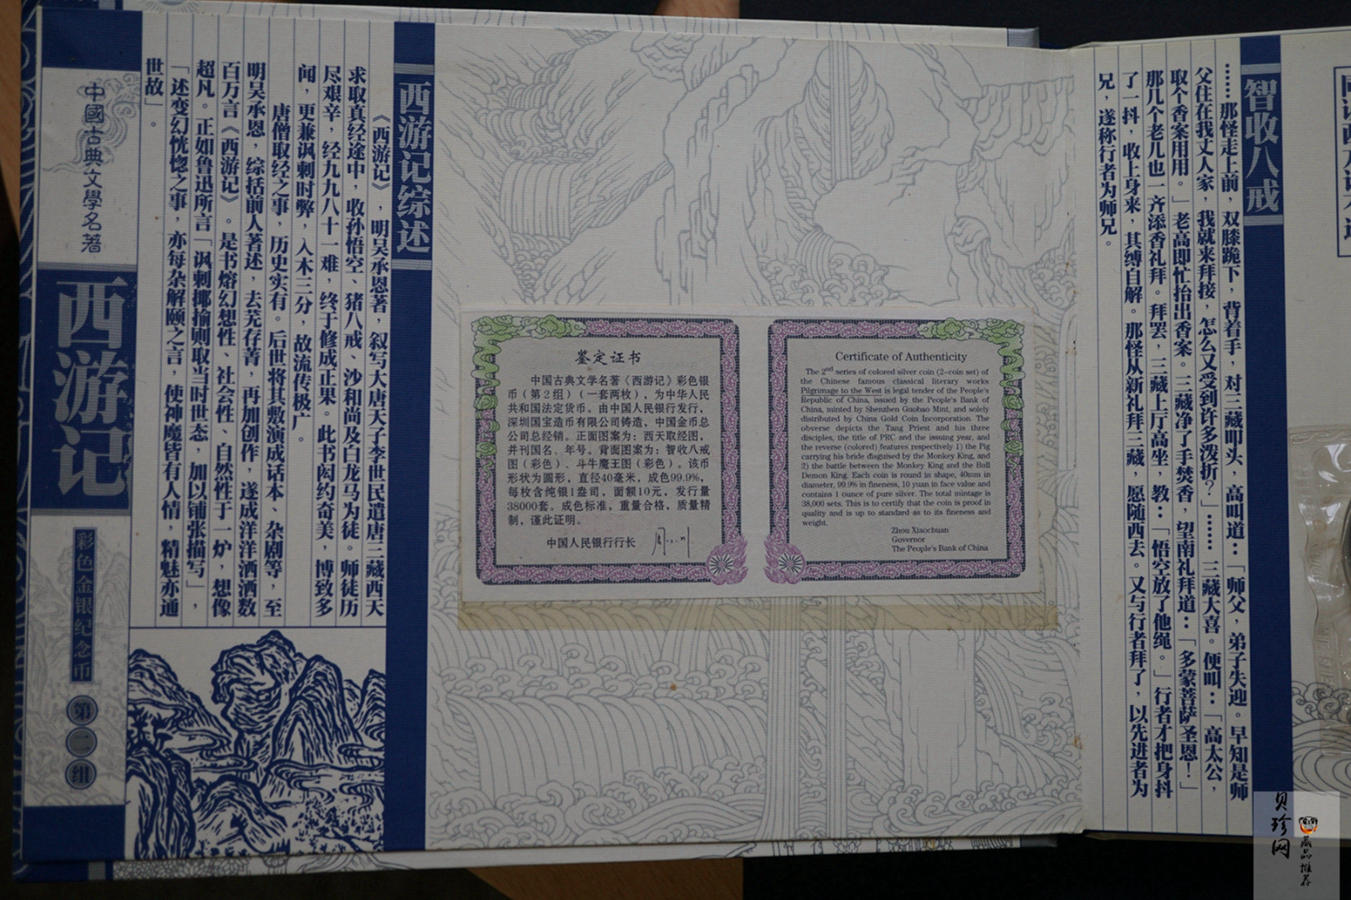 中國古典文學名著
西游记
彩色金银纪念币
第二组
西游记综述
《西游记》，明吴承恩著，叙写大唐天子李世民遣唐三藏西天
求取真经途中，收孙悟空、猪八戒、沙和尚及白龙马为徒。师徒历
尽艰辛，经九九八十一难，终于修成正果。此书闳约奇美，博致多
闻，更兼讽刺时弊，入木三分，故流传极广。
唐僧取经之事，历史实有。后世将其敷演成话本、杂剧等，至
明吴承恩，综括前人著述，去芜存菁，再加创作，遂成洋洋洒洒数
百万言《西游记》。是书熔幻想性、社会性、自然性于一炉，想像
超凡。正如鲁迅所言「讽刺揶揄则取当时世态，加以铺张描写」，
「述变幻恍惚之事，亦每杂解颐之言，使神魔皆有人情，精魅亦通
世故」。
鉴定证书
中国古典文学名著《西游记》彩色银
币（第2组）（一套两枚），为中华人民
共和国法定货币。由中国人民银行发行，
深圳国宝造币有限公司铸造，中国金币总
公司总经销。正面图案为：西天取经图，
并刊国名、年号。背面图案为：智收八戒
图（彩色）、斗牛魔王图（彩色）。该币
形状为圆形，直径40毫米，成色99.9%，
每枚含纯银1盎司，面额10元，发行量
38000套。成色标准，重量合格，质量精
制，谨此证明。
中国人民银行行长
Certificate of Authenticity
The 2nd series of colored silver coin (2-coin set) of
the Chinese famous classical literary works
Pilgrimage to the West is legal tender of the People's
Republic of China, issued by the People's Bank of
China, minted by Shenzhen Guobao Mint, and solely
distributed by China Gold Coin Incorporation. The
obverse depicts the Tang Priest and his three
disciples, the title of PRC and the issuing year, and
the reverse (colored) features respectively 1) the Pig
carrying his bride disguised by the Monkey King, and
2) the battle between the Monkey King and the Bull
Demon King. Each coin is round in shape, 40mm in
diameter, 99.9% in fineness, 10 yuan in face value and
contains 1 ounce of pure silver. The total mintage is
38,000 sets. This is to certify that the coin is proof in
quality and is up to standard as to its fineness and
weight.
Zhou Xiaochuan
Governor
The People's Bank of China
智收八戒
……那怪走上前，双膝跪下，背着手，对三藏叩头，高叫道：「师父，弟子失迎。早知是师
父住在我丈人家，我就来拜接，怎么又受到许多泼折？」……三藏大喜。便叫：「高太公，
取个香案用用。」老高即忙抬出香案。三藏净了手焚香，望南礼拜道：「多蒙菩萨圣恩！」
那几个老儿也一齐添香礼拜。拜罢，三藏上厅高坐，教：「悟空放了他绳。」行者才把身抖
了一抖，收上身来，其缚自解。那怪从新礼拜三藏，愿随西去。又与行者拜了，以先进者为
兄，遂称行者为师兄。
贝珍网
藏品推荐